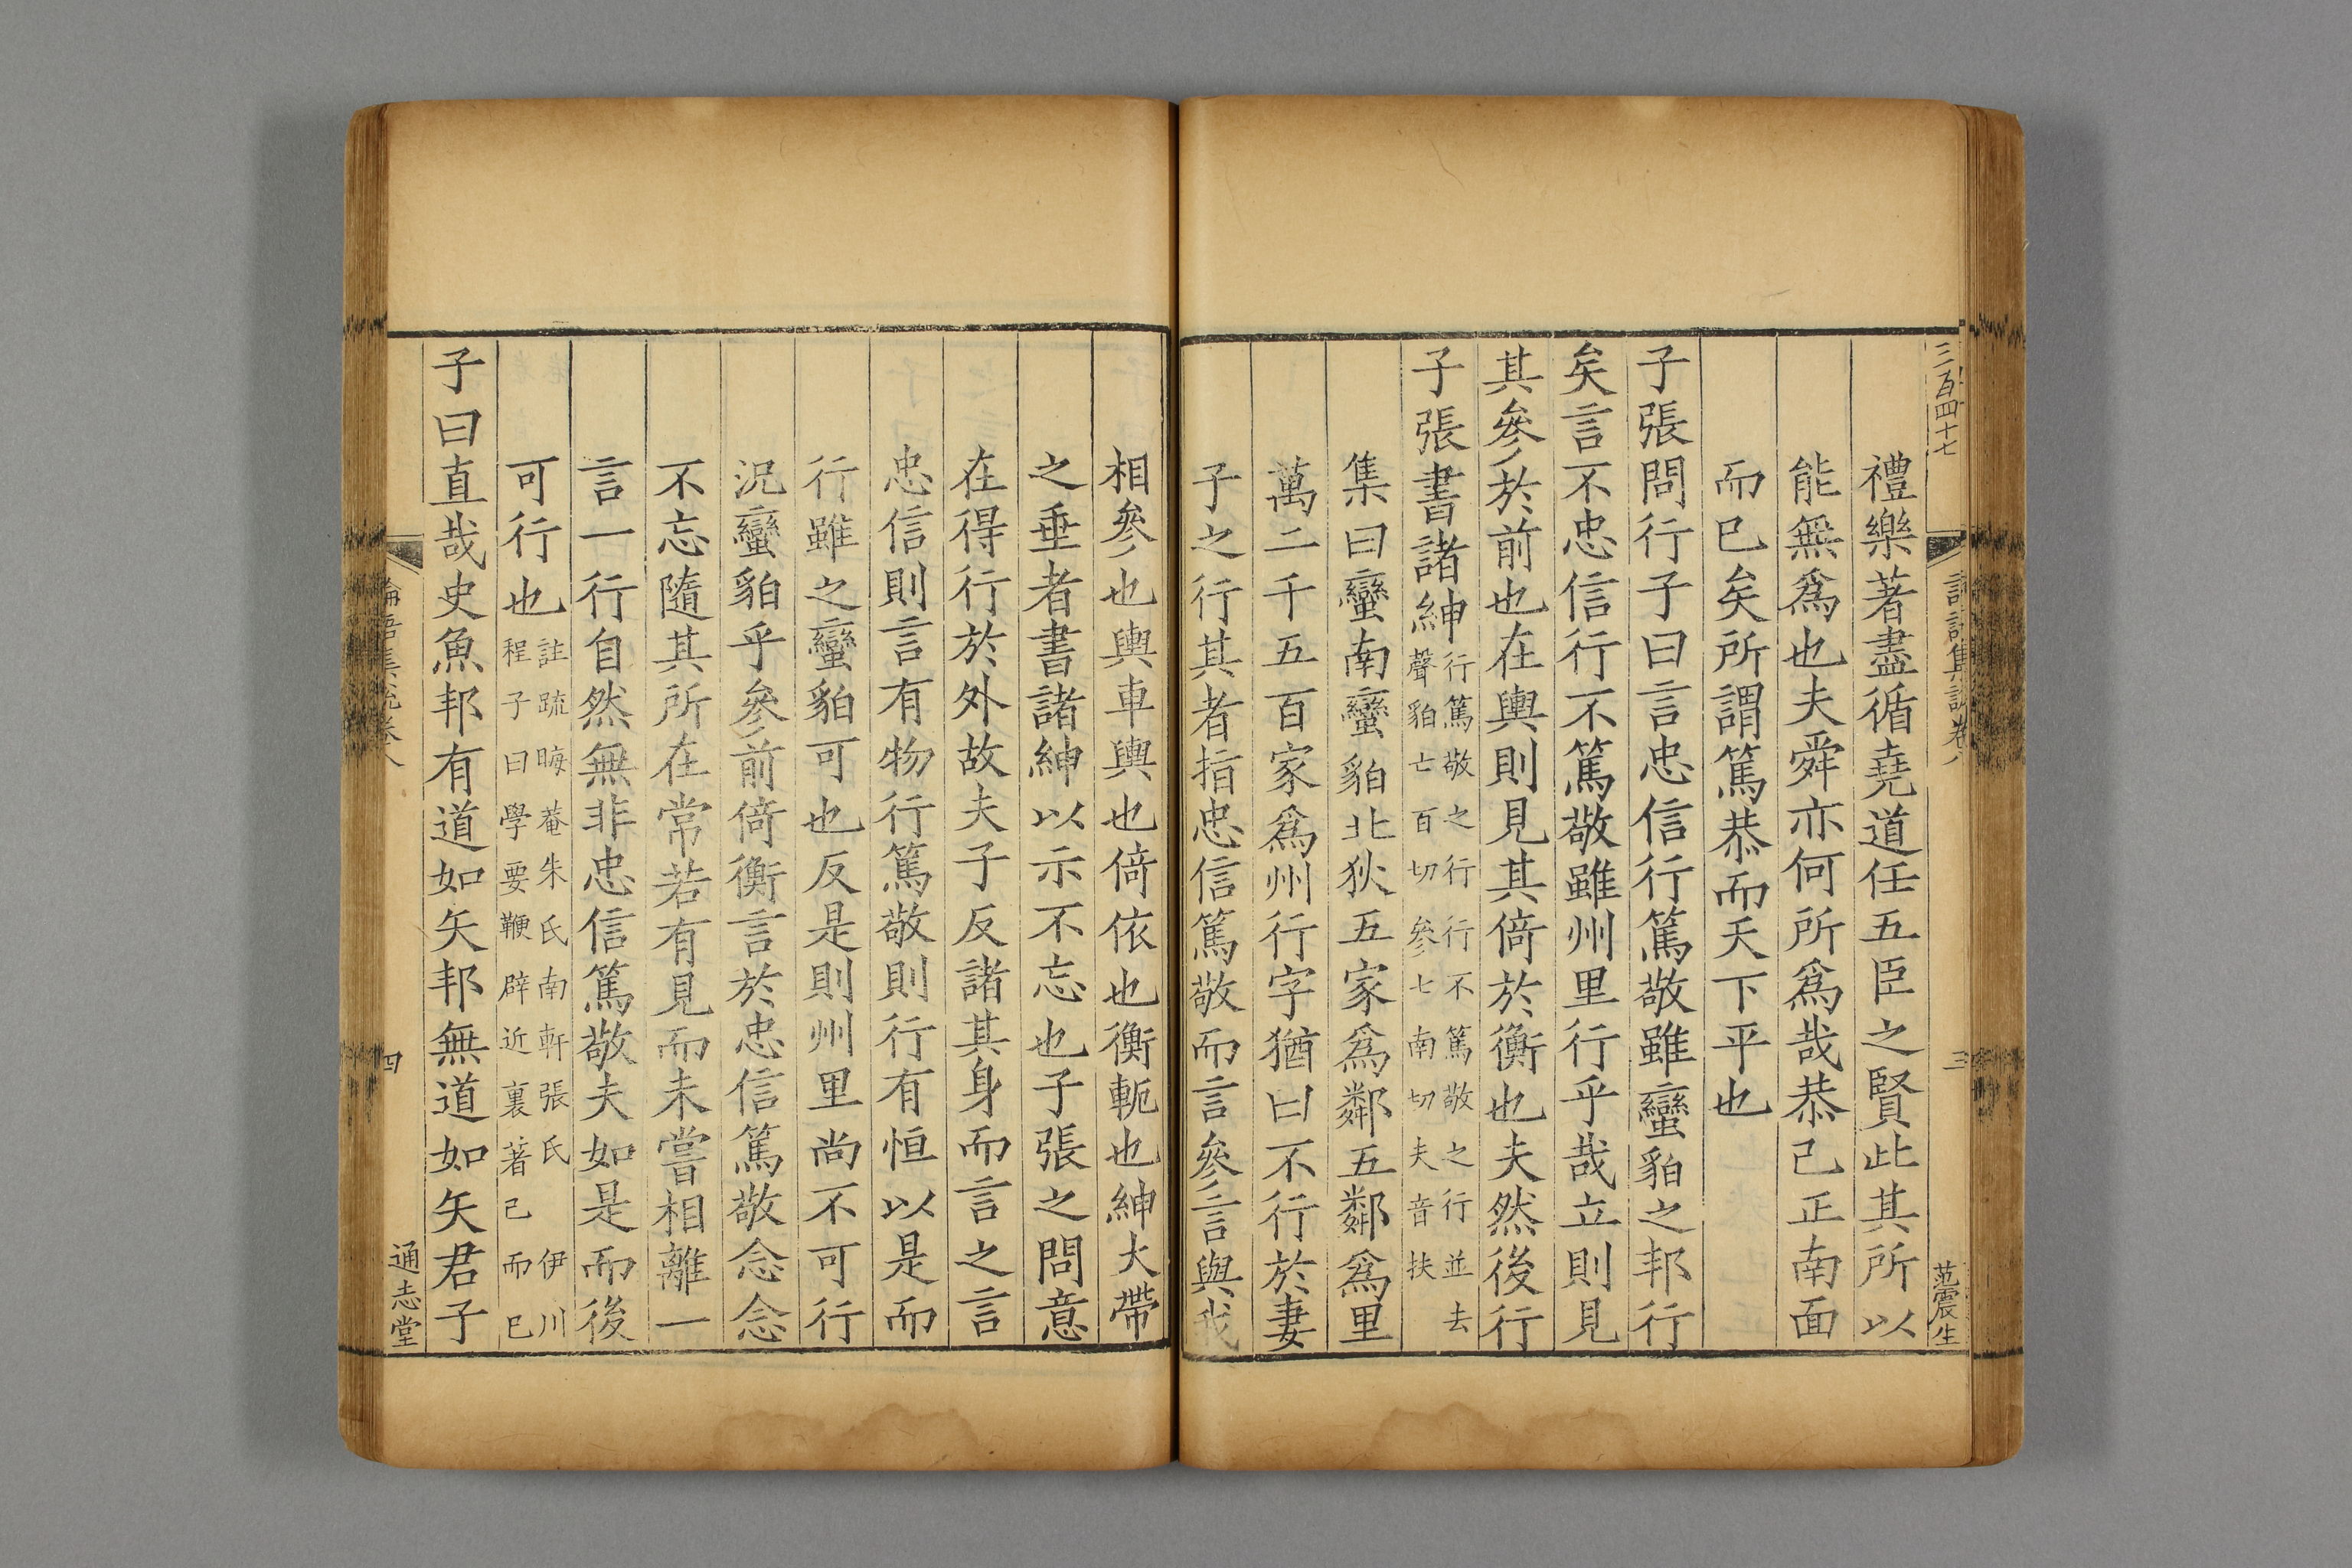 三百四十七
論語集說卷八
三
范震生
禮樂著盡循堯道任五臣之賢此其所以
能無爲也夫舜亦何所爲哉恭己正南面
而已矣所謂篤恭而天下平也
子張問行子曰言忠信行篤敬雖蠻貊之邦行
矣言不忠信行不篤敬雖州里行乎哉立則見
其參於前也在輿則見其倚於衡也夫然後行
子張書諸紳行篤敬之行行不篤敬之行並去
聲貊亡百切參七南切夫音扶
集曰蠻南蠻貊北狄五家爲鄰五鄰爲里
萬二千五百家爲州行字猶曰不行於妻
子之行其者指忠信篤敬而言參言與我
相參也輿車輿也倚依也衡軛也紳大帶
之垂者書諸紳以示不忘也子張之問意
在得行於外故夫子反諸其身而言之言
忠信則言有物行篤敬則行有恒以是而
行雖之蠻貊可也反是則州里尚不可行
況蠻貊乎參前倚衡言於忠信篤敬念念
不忘隨其所在常若有見而未嘗相離一
言一行自然無非忠信篤敬夫如是而後
可行也註疏晦菴朱氏南軒張氏 伊川
程子曰學要鞭辟近裏著己而已
子曰直哉史魚邦有道如矢邦無道如矢君子
論語集說卷八
四
通志堂